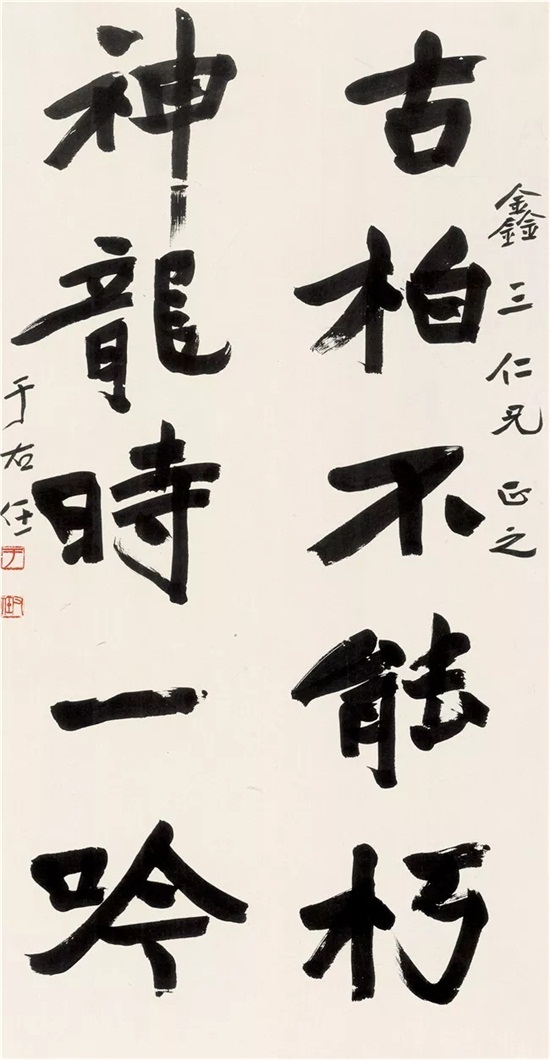 鑫三仁兄正之
古柏不能朽
神龍時一吟
于右任